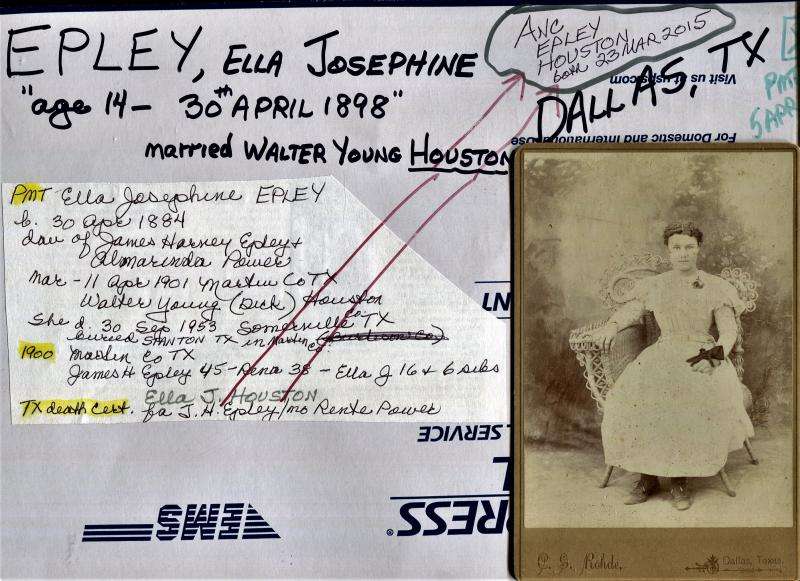 EPLEY, ELLA JOSEPHINE
"age 14 - 30th APRIL 1898"
married WALTER YOUNG HOUSTON
ANC
EPLEY
HOUSTON
both 23 MAR 2015
DALLAS, TX
PMT
5 APR
Visit us at usps.com
For Domestic and International Use
PMT Ella Josephine EPLEY
b. 30 Apr 1884
dau of James Harvey Epley +
Almarinda Power
mar - 11 Apr 1901 Martin Co TX
Walter Young (Dick) Houston
She d. 30 Sep 1953 Somerville Co TX
buried STANTON TX in Martin Co
1900 Martin Co TX
James H Epley 45 - Rena 38 - Ella J 16 & 6 sibs
Ella J. HOUSTON
TX death Cert. fa J. H. Epley/mo Rente Power
INT
L SERVICE
PRESS
EMS
C. G. Rohde,
Dallas, Texas.